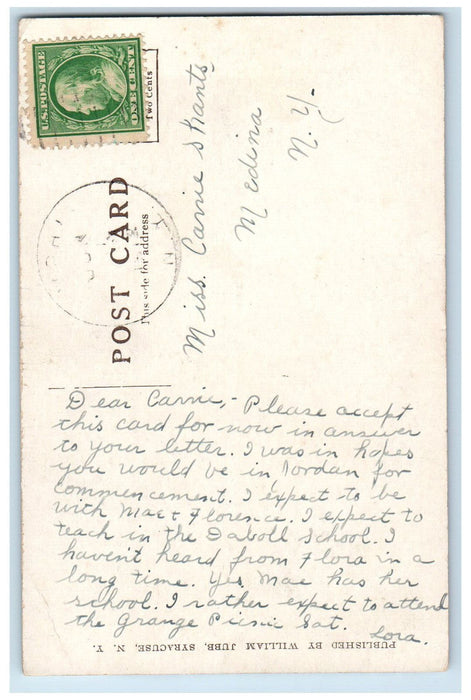 U.S. POSTAGE
ONE CENT
Two Cents
POST CARD
This side for address
Miss. Carrie Skants
Medina
N.Y.
Dear Carrie,- Please accept
this card for now in answer
to your letter. I was in hopes
you would be in Jordan for
commencement. I expect to be
with Mae & Florence. I expect to
teach in the Daboll School. I
havent heard from Flora in a
long time. Yes, Mae has her
school. I rather expect to attend
the Grange Picnic Sat.
Lora.
PUBLISHED BY WILLIAM JUBB, SYRACUSE, N. Y.